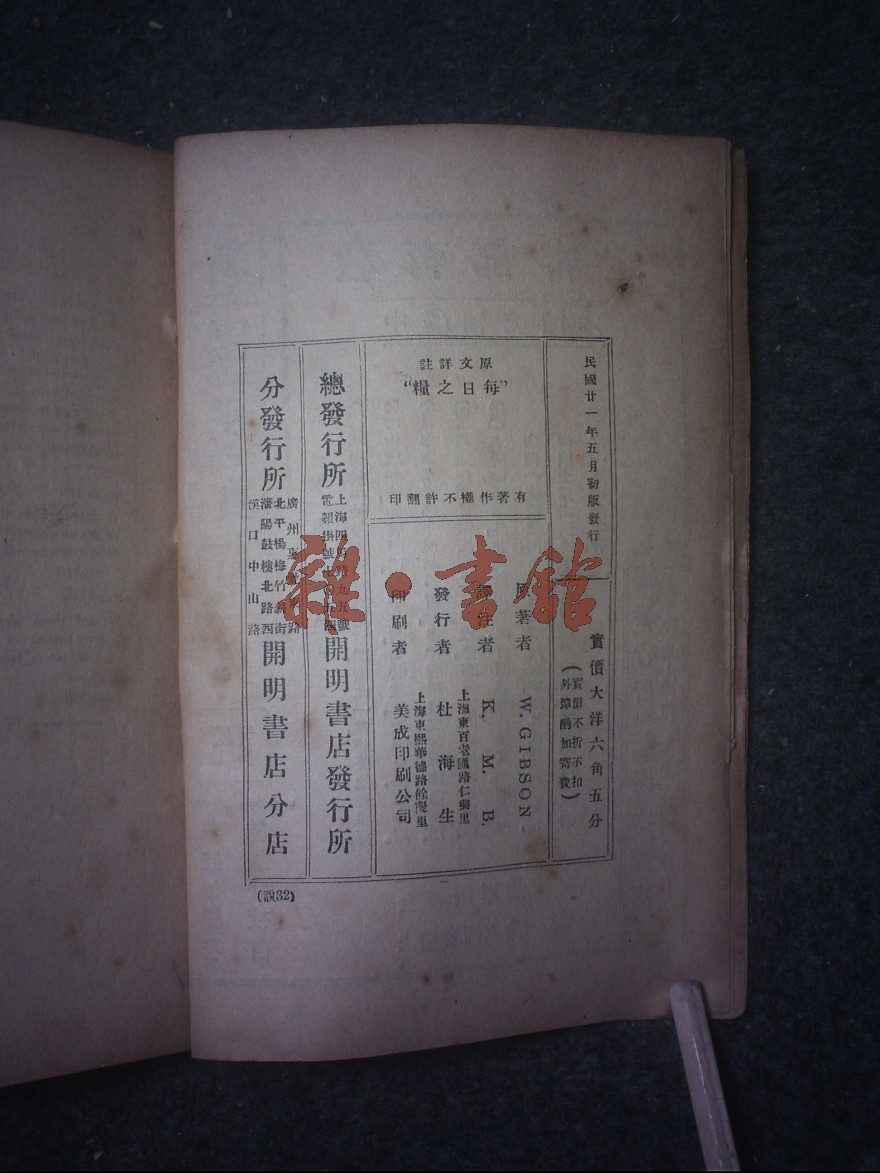 民國廿一年五月初版發行
實價大洋六角五分
(實價不折不扣
外埠酌加寄費)
原文詳註
“每日之糧”
有著作權不許翻印
原著者 W. GIBSON
譯注者 K. M. B.
發行者 杜海生
上海東百老匯路仁興里
印刷者 美成印刷公司
上海東熙華德路餘慶里
總發行所
上海四馬路九五號
電報掛號七〇五四
開明書店發行所
分發行所
廣州惠東路
北平楊梅竹斜街
瀋陽鼓樓北路西
漢口中山路
開明書店分店
(說32)
雜·書館